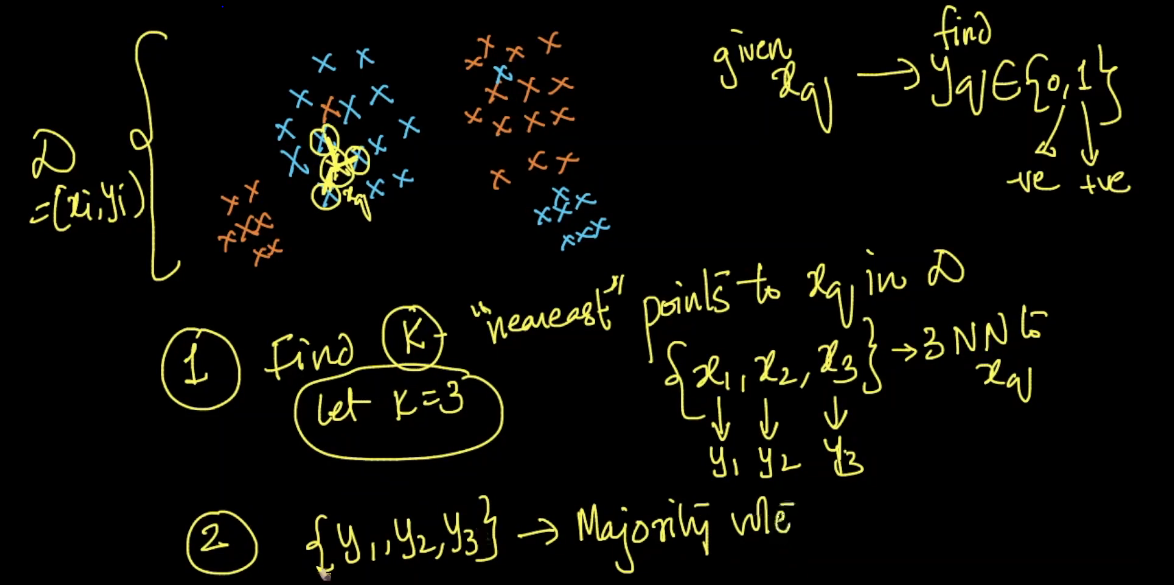 find
given x_q → y_q ∈ {0, 1}
-ve +ve
D
= {xi, yi}
x_q
1 Find K- "neareast" points to x_q in D
Let K=3
{x1, x2, x3} → 3 NN to
x_q
y1 y2 y3
2 {y1, y2, y3} → Majority vote